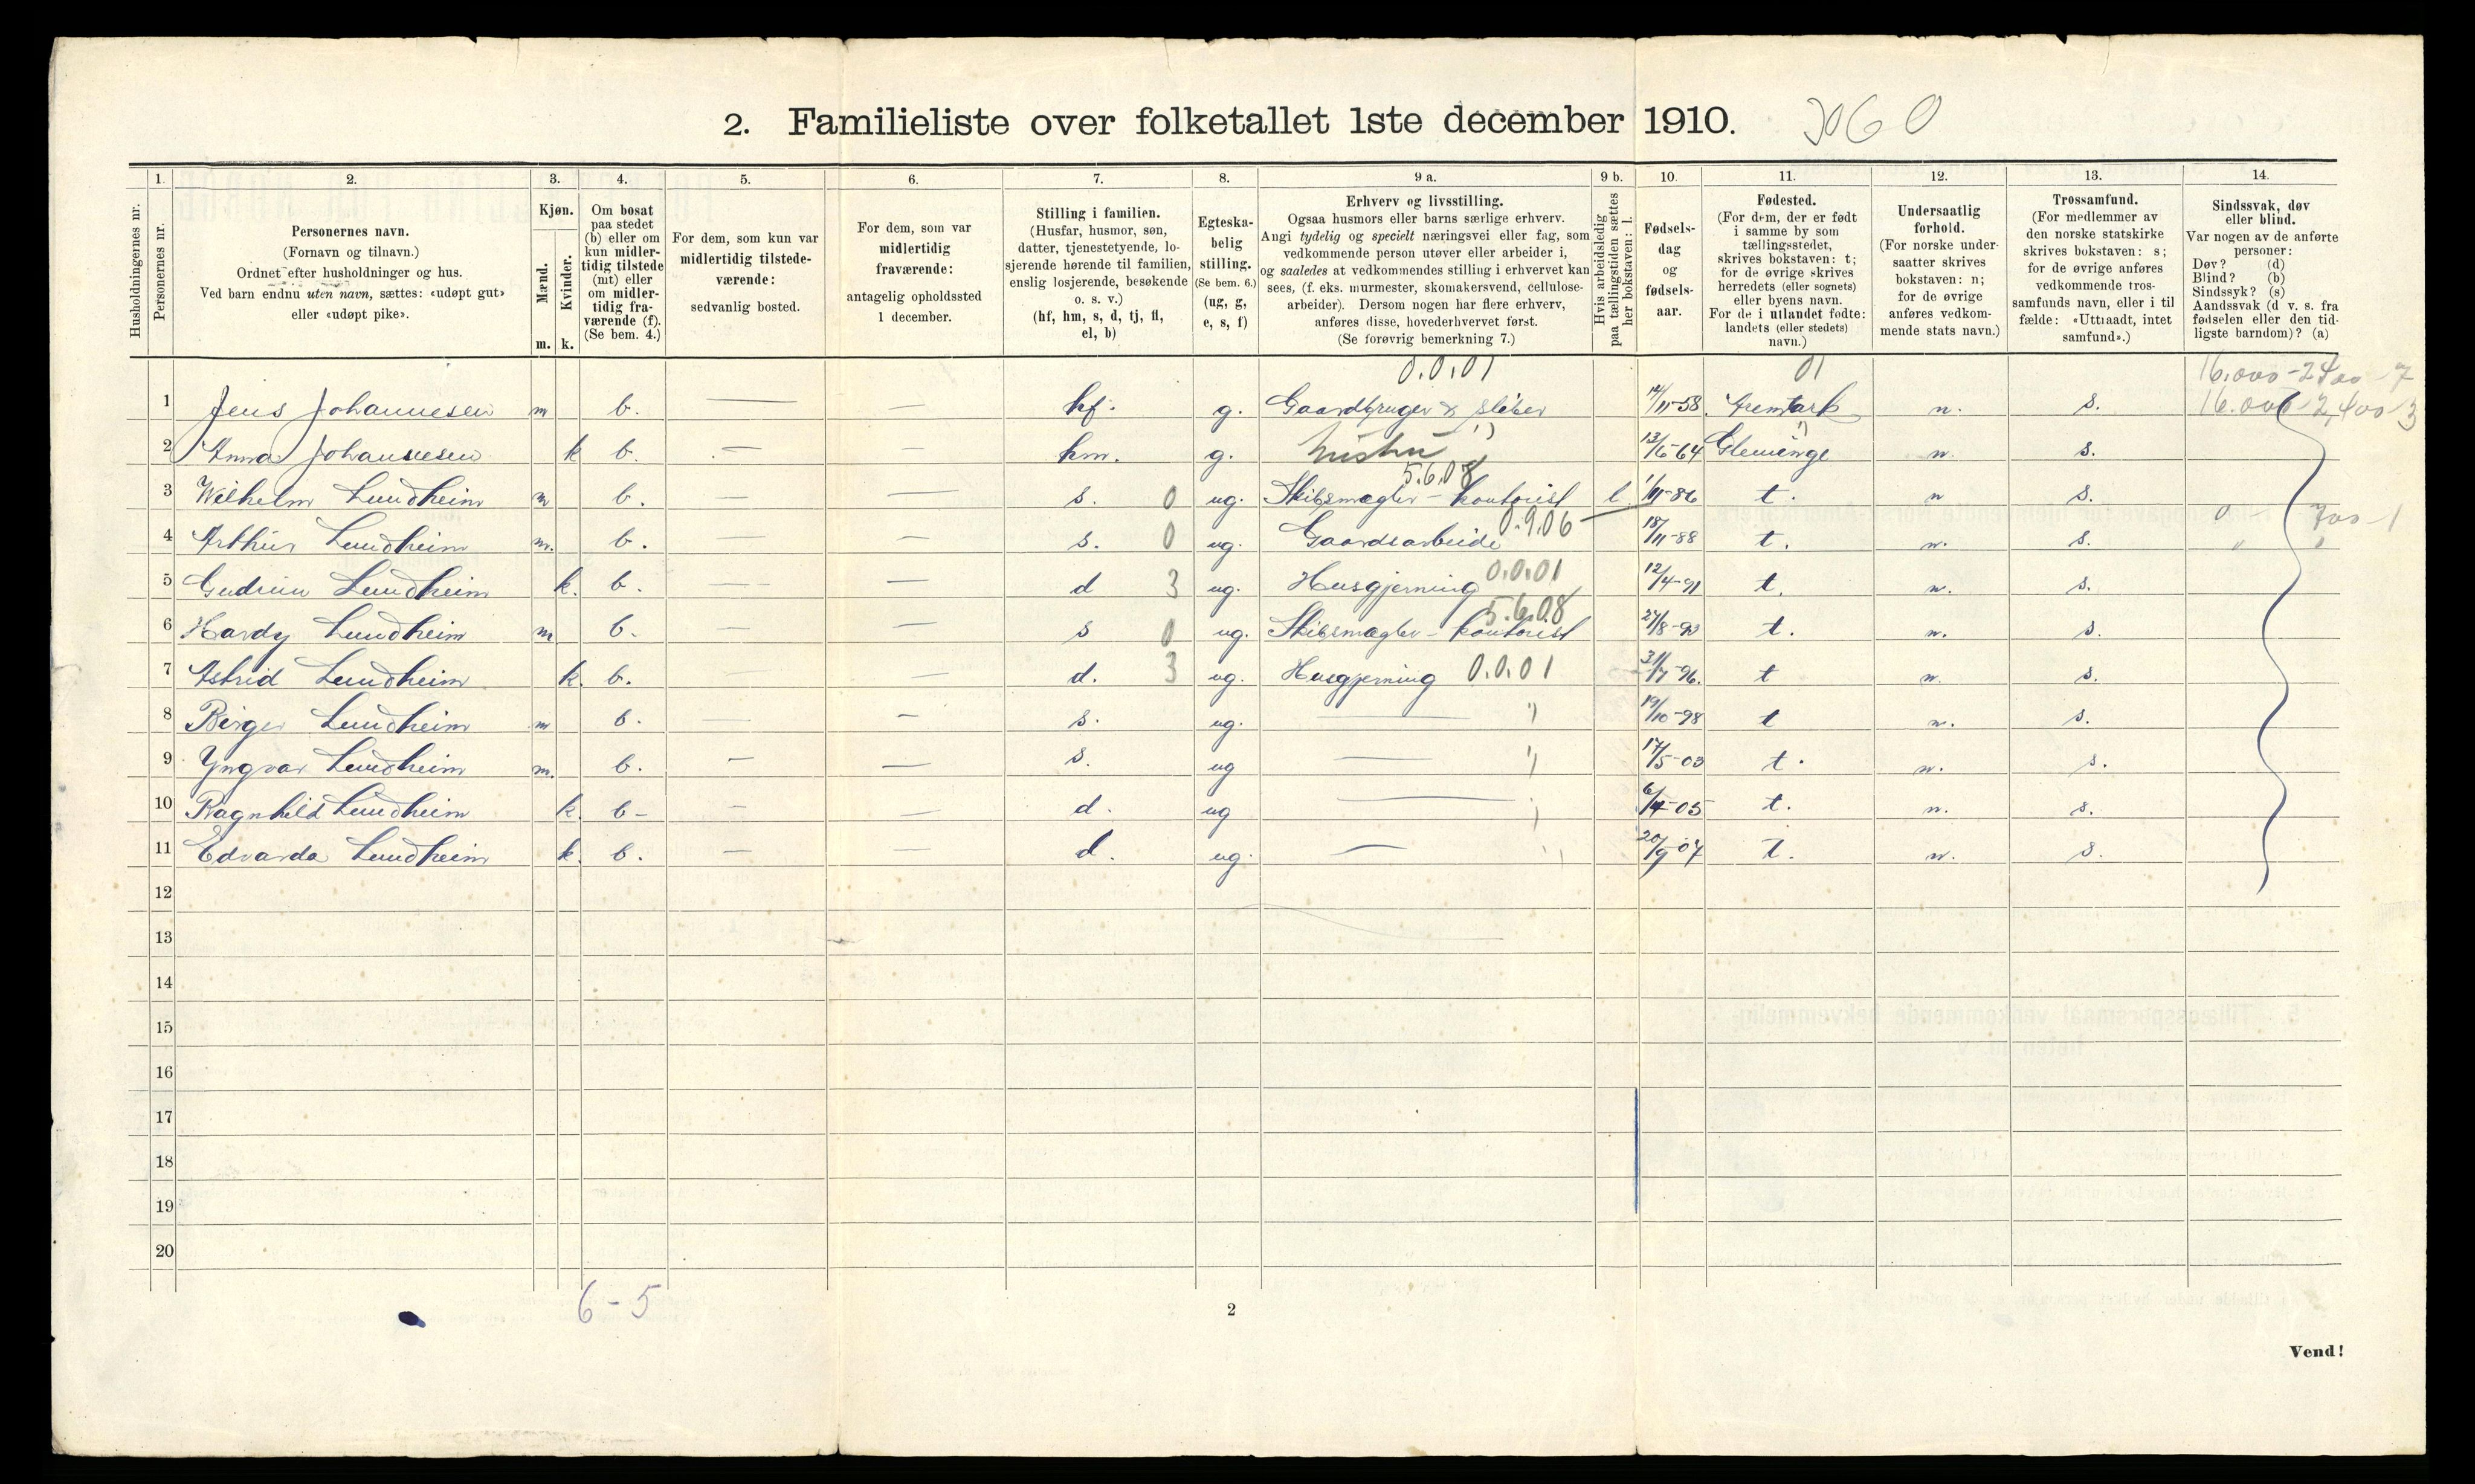 2. Familieliste over folketallet 1ste december 1910.
Husholdningernes nr.
1.
Personernes nr.
2.
Personernes navn.
(Fornavn og tilnavn.)
Ordnet efter husholdninger og hus.
Ved barn endnu uten navn, sættes: «udøpt gut»
eller «udøpt pike».
3.
Kjøn.
Mænd.
Kvinder.
m. k.
4.
Om bosat
paa stedet
(b) eller om
kun midler-
tidig tilstede
(mt) eller
om midler-
tidig fra-
værende (f).
(Se bem. 4.)
5.
For dem, som kun var
midlertidig tilstede-
værende:
sedvanlig bosted.
6.
For dem, som var
midlertidig
fraværende:
antagelig opholdssted
1 december.
7.
Stilling i familien.
(Husfar, husmor, søn,
datter, tjenestetyende, lo-
sjerende hørende til familien,
enslig losjerende, besøkende
o. s. v.)
(hf, hm, s, d, tj, fl,
el, b)
8.
Egteska-
belig
stilling.
(Se bem. 6.)
(ug, g,
e, s, f)
9 a.
Erhverv og livsstilling.
Ogsaa husmors eller barns særlige erhverv.
Angi tydelig og specielt næringsvei eller fag, som
vedkommende person utøver eller arbeider i,
og saaledes at vedkommendes stilling i erhvervet kan
sees, (f. eks. murmester, skomakersvend, cellulose-
arbeider). Dersom nogen har flere erhverv,
anføres disse, hovederhvervet først.
(Se forøvrig bemerkning 7.)
9 b.
Hvis arbeidsledig
paa tællingstiden sættes
her bokstaven: l.
10.
Fødsels-
dag
og
fødsels-
aar.
11.
Fødested.
(For dem, der er født
i samme by som
tællingsstedet,
skrives bokstaven: t;
for de øvrige skrives
herredets (eller sognets)
eller byens navn.
For de i utlandet fødte:
landets (eller stedets)
navn.)
12.
Undersaatlig
forhold.
(For norske under-
saatter skrives
bokstaven: n;
for de øvrige
anføres vedkom-
mende stats navn.)
13.
Trossamfund.
(For medlemmer av
den norske statskirke
skrives bokstaven: s;
for de øvrige anføres
vedkommende tros-
samfunds navn, eller i til
fælde: «Uttraadt, intet
samfund».)
14.
Sindssvak, døv
eller blind.
Var nogen av de anførte
personer:
Døv? (d)
Blind? (b)
Sindssyk? (s)
Aandssvak (d v. s. fra
fødselen eller den tid-
ligste barndom)? (a)
0.0.01 01 16.000-2400-7
1 Jens Johannesen m b. — — hf. g. Gaardbruger & 14/11-58 Aremark n. s. 16.000-2,400-3
2 Anna Johannesen k b. — — hm. g. hustru 13/6-64 Glemminge n. s.
5.6.08
3 Wilhelm Lundheim m b. — — s. 0 ug. Skibsmægler-kontorist l. 1/11-86 t. n s.
0.9.06 700-1
4 Arthur Lundheim m. b. — — s. 0 ug. Gaardsarbeide 18/11-88 t. n. s.
0.0.01
5 Gudrun Lundheim k. b. — — d 3 ug. Husgjerning 12/4-91 t. n. s.
5.6.08
6 Hardy Lundheim m b. — — s 0 ug. Skibsmægler-kontorist 27/8-93 t. n. s.
7 Astrid Lundheim k. b. — — d. 3 ug. Husgjerning 0.0.01 31/7-96. t n. s.
8 Birger Lundheim m b. — — s. ug. — 19/10-98 t n. s.
9 Yngvar Lundheim m. b. — — s. ug — 17/5-03 t. n. s.
10 Ragnhild Lundheim k. b- — — d. ug — 6/4-05 t. n. s.
11 Edvarda Lundheim k. b. — — d. ug. — 20/9-07 t. n. s.
12
13
14
15
16
17
18
19
20
6-5
2
Vend!